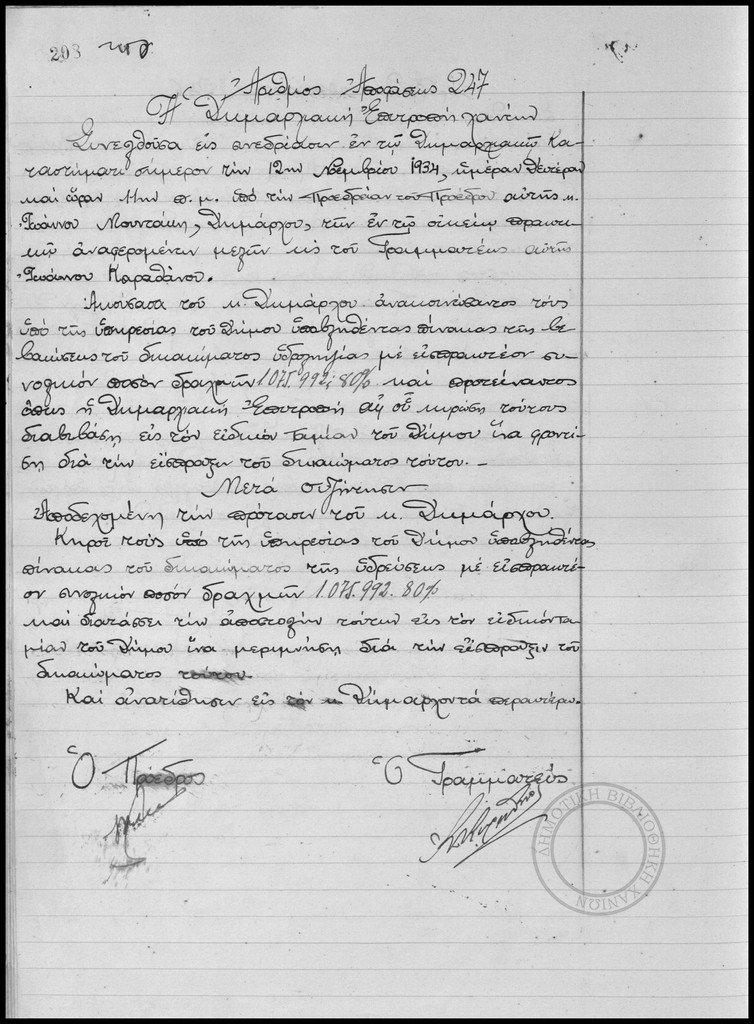 203
Ἀριθμός Ἀποφάσεως 247
Ἡ Δημαρχιακή Ἐπιτροπή Χανίων
Συνελθοῦσα εἰς συνεδρίασιν ἐν τῷ Δημαρχιακῷ Κα-
ταστήματι σήμερον τήν 12ην Νοεμβρίου 1934, ἡμέραν Δευτέραν
καί ὥραν 11ην π.μ. ὑπό τήν Προεδρείαν τοῦ Προέδρου αὐτῆς κ.
Ἰωάννου Μουντάκη, Δημάρχου, τῶν ἐν τῷ οἰκείῳ πρακτι-
κῷ ἀναφερομένων μελῶν κις τοῦ Γραμματέως αὐτῆς
Ἰωάννου Καραθάνου.
Ἀκούσασα τοῦ κ. Δημάρχου ἀνακοινώσαντος τούς
ὑπό τῆς ὑπηρεσίας τοῦ Δήμου ὑποβληθέντας πίνακας τῆς βε-
βαιώσεως τοῦ δικαιώματος ὑδροληψίας μέ εἰσπρακτέον συ-
νολικόν ποσόν δραχμῶν 1.075.992; 80% καί προτείναντος
ὅπως ἡ Δημαρχιακή Ἐπιτροπή ἀφ' οὗ κυρώση τούτους
διαβιβάση εἰς τόν εἰδικόν ταμίαν τοῦ Δήμου ἵνα φροντί-
ση διά τήν εἴσπραξιν τοῦ δικαιώματος τούτου. –
Μετά συζήτησιν
Ἀποδεχομένη τήν πρότασιν τοῦ κ. Δημάρχου.
Κυροῖ τούς ὑπό τῆς ὑπηρεσίας τοῦ Δήμου ὑποβληθέντας
πίνακας τοῦ δικαιώματος τῆς ὑδρεύσεως μέ εἰσπρακτέ-
ον συνολικόν ποσόν δραχμῶν 1.075.992. 80%
καί διατάσσει τήν ἀποστολήν τούτων εἰς τόν εἰδικόν τα-
μίαν τοῦ Δήμου ἵνα μεριμνήση διά τήν εἴσπραξιν τοῦ
δικαιώματος τούτου.
Καί ἀνατίθησιν εἰς τόν κ Δήμαρχον τά περαιτέρω.
Ὁ Πρόεδρος
Ὁ Γραμματεύς
ΔΗΜΟΤΙΚΗ ΒΙΒΛΙΟΘΗΚΗ ΧΑΝΙΩΝ